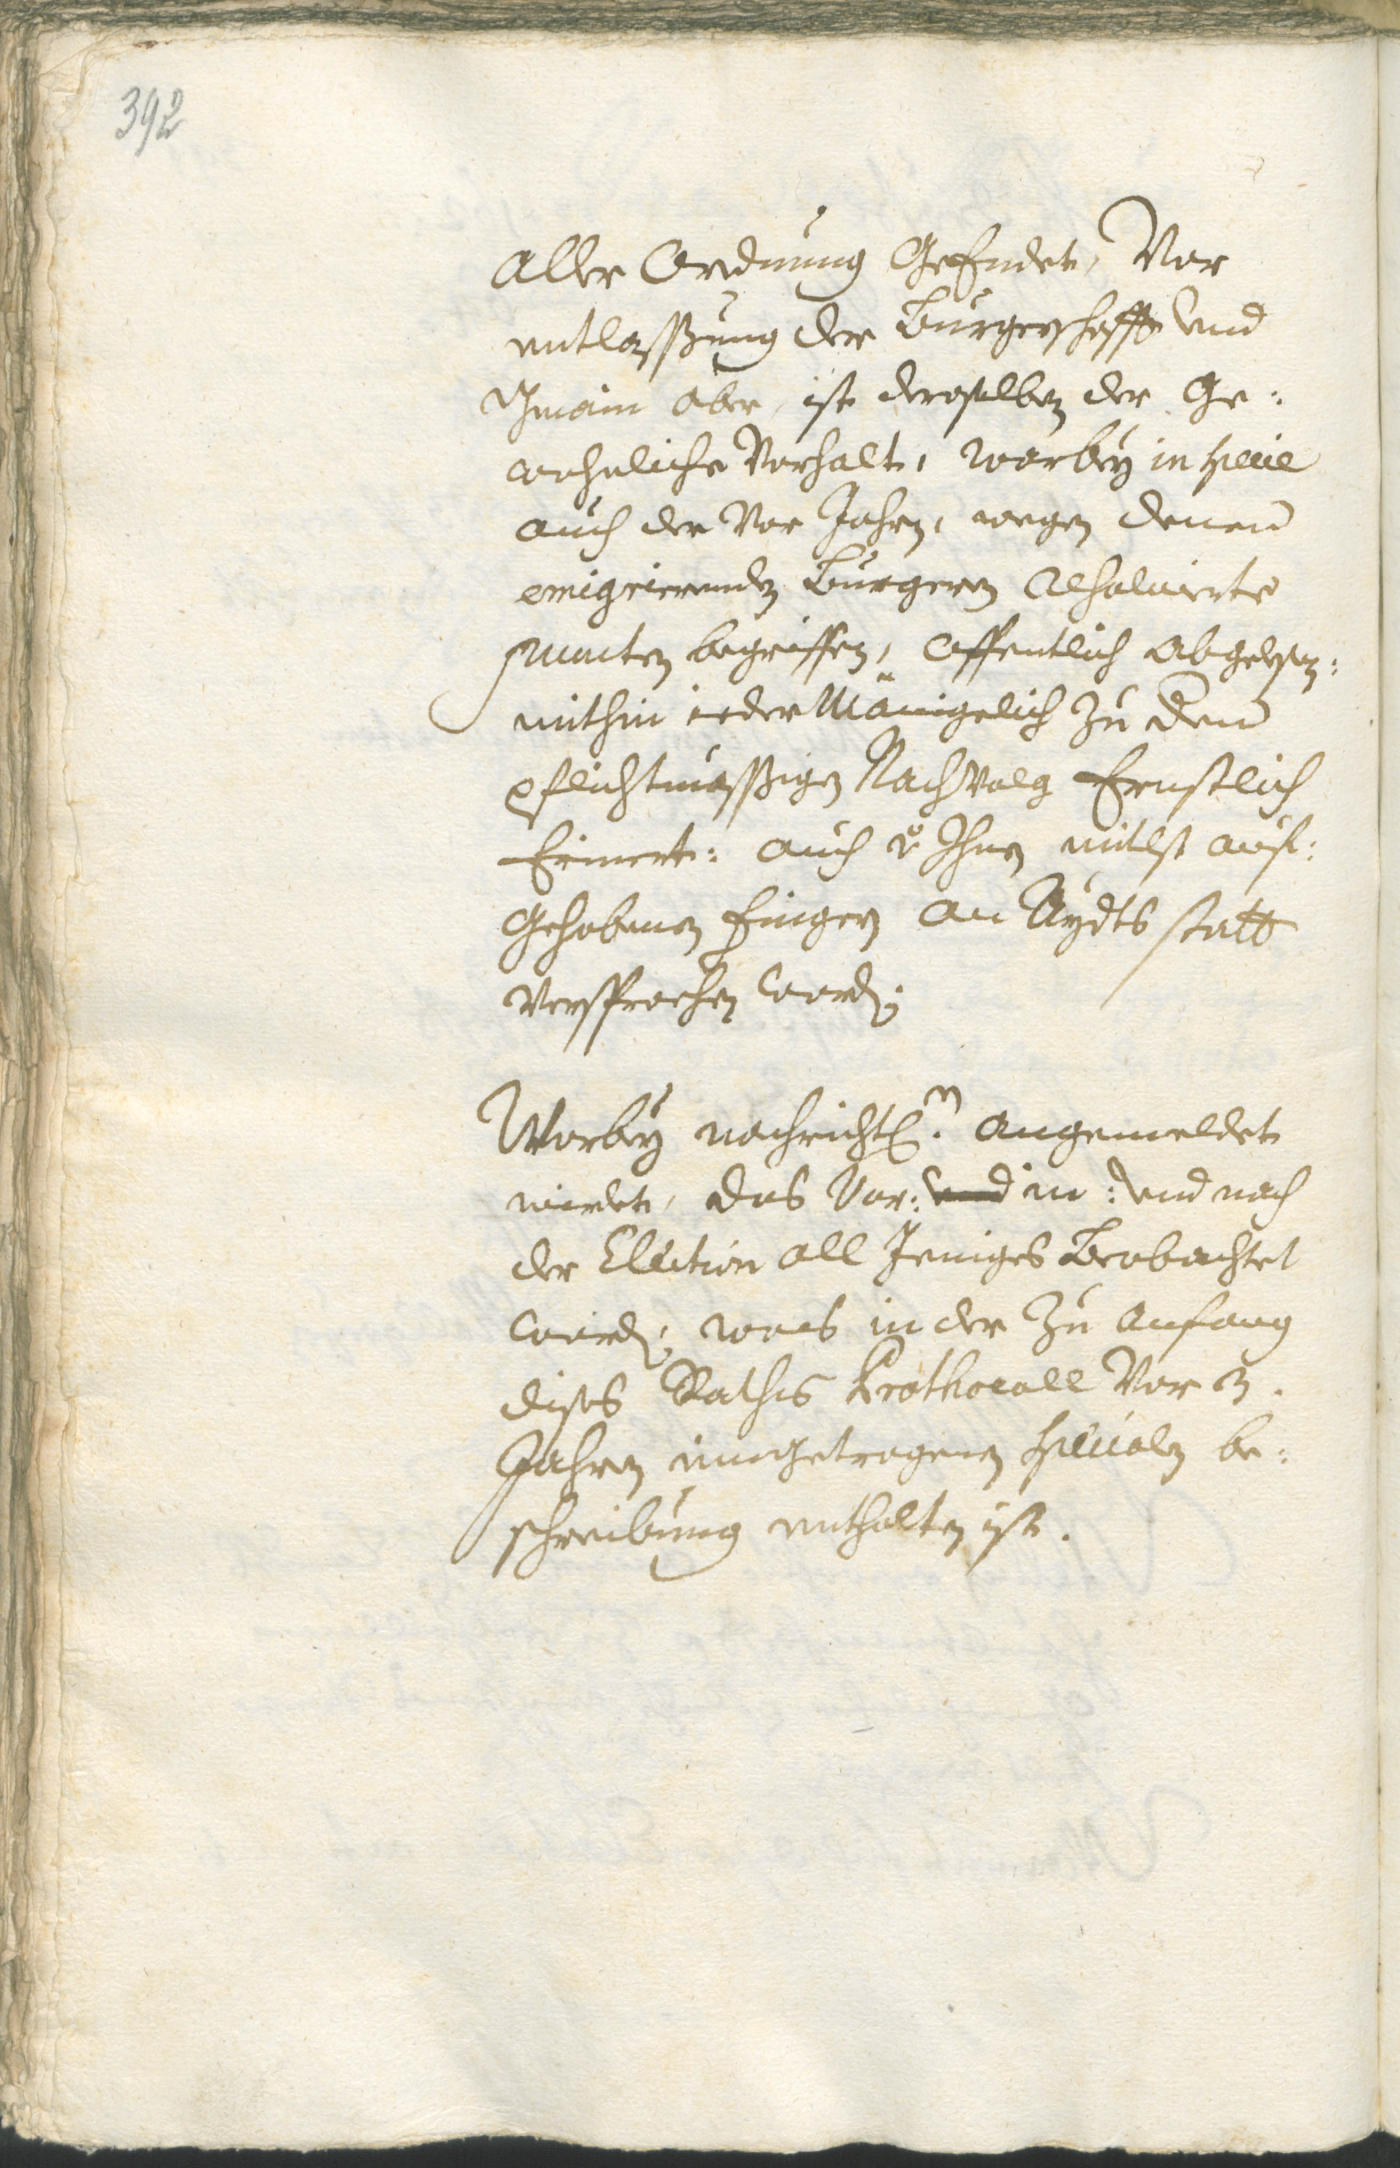 392
Aller Ordnung GeEndet, Vor
entlassung der Burgerschafft Vnd
Gmain aber, ist deroselben der Ge:
wohnliche Vorhalt, warbey in specie
auch der Vor Jahrn, wegen denen
emigrierenden Burgern resolvierte
puncten begriffen, offentlich abgelesen:
mithin iedermänigelich zu dem
pflichtmässigen Nachvolg Ernstlich
Erinnert: auch von Ihnen mitlst auf:
Gehobenen fingern an Aydts statt
Versprochen word:
Worbey nachrichtl:n angemeldet
wirdet, das Vor: in: Vnd nach
der Election all Jeniges Beobachtet
word: was in der zu Anfang
dises Raths Prothocoll Vor 3.
Jahren eingetragenen specialen be:
schreibung enthalten ist.